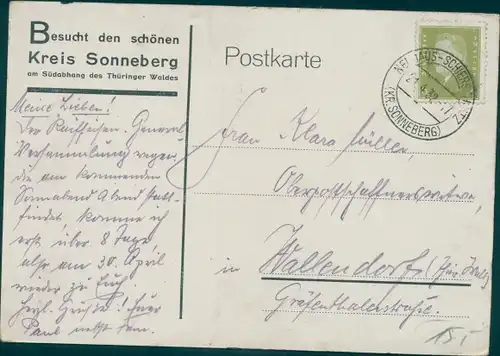 Besucht den schönen
Kreis Sonneberg
am Südabhang des Thüringer Waldes
Postkarte
NEUHAUS-SCHIERSCHNITZ
(KR. SONNEBERG)
Meine Lieben!
Der Raiffeisen-General-
Versammlung wegen,
die am kommenden
Sonnabend Abend statt-
findet komme ich
erst über 8 Tage,
also am 30. April
wieder zu Euch.
Herzl. Grüße! Euer
Paul nebst
Frau Klara Müller,
Oberpostschaffnerswitwe,
in Wallendorf
Gräfenthalerstraße.
15.-